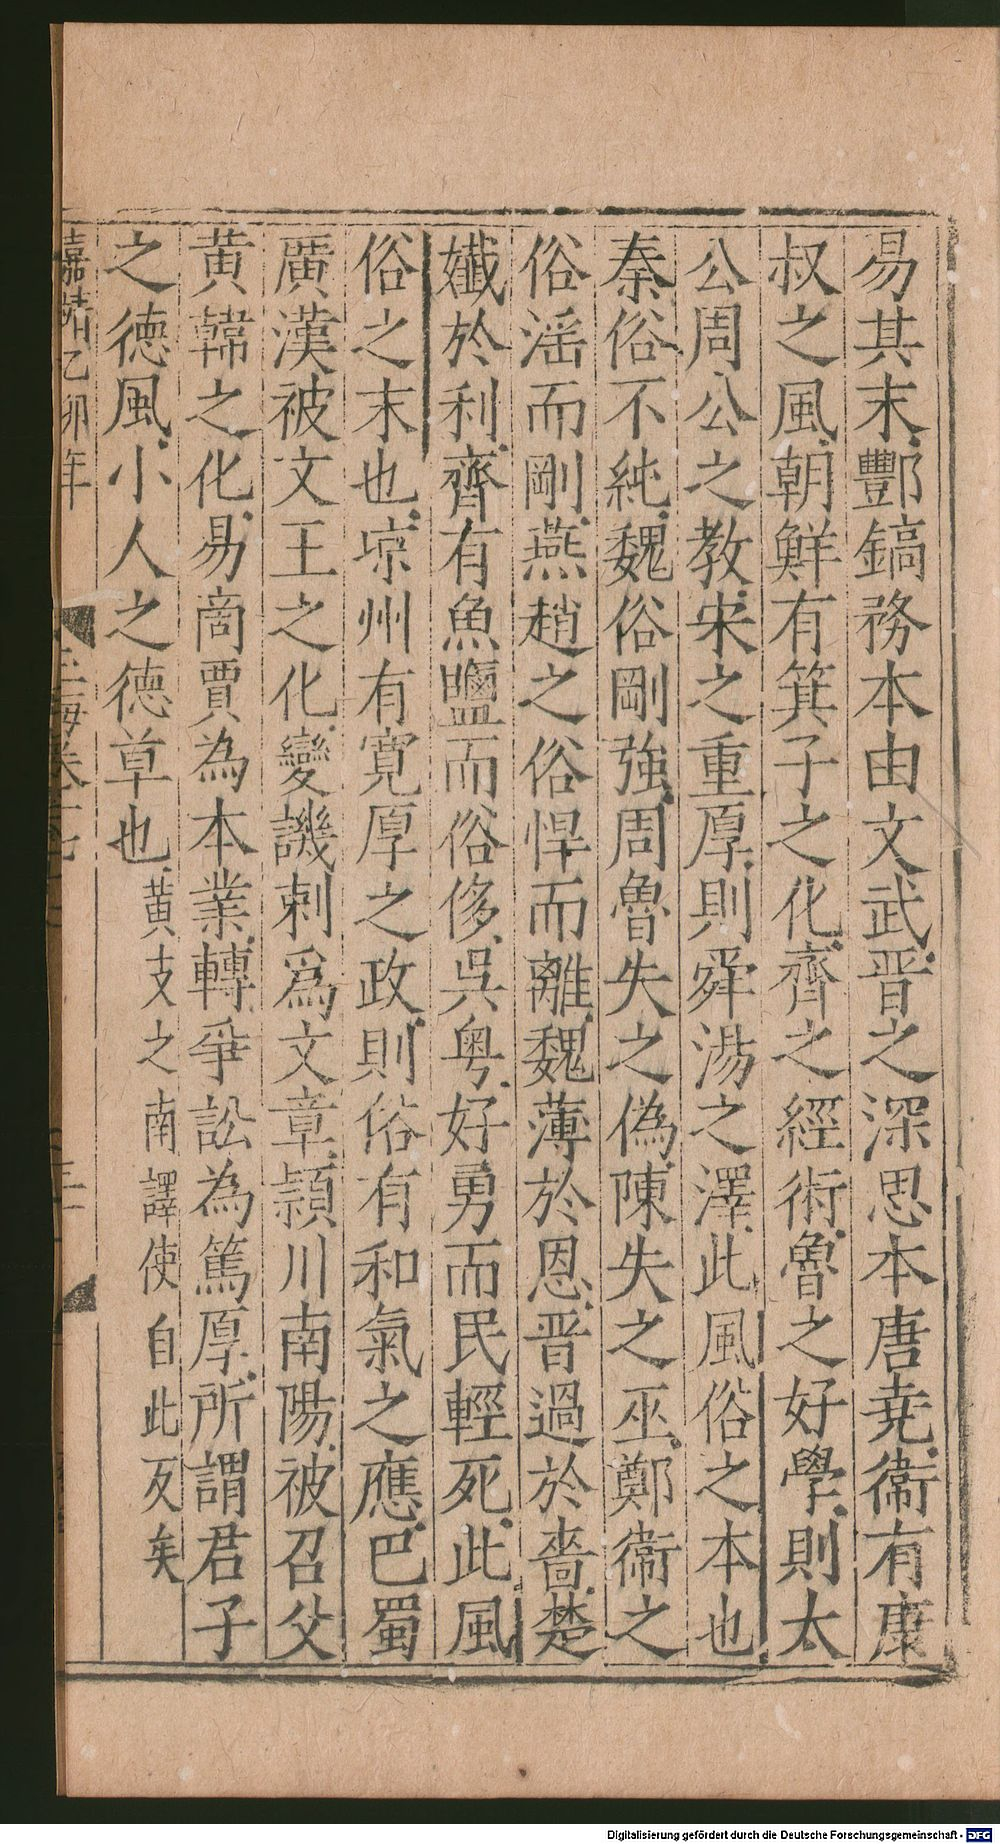 易其末酆鎬務本由文武晋之深思本唐尭衞有康
叔之風朝鮮有箕子之化齊之經術魯之好學則太
公周公之教宋之重厚則舜湯之澤此風俗之本也
秦俗不純魏俗剛強周魯失之偽陳失之巫鄭衞之
俗滛而剛燕趙之俗悍而離魏薄於恩晋過於嗇楚
孅於利齊有魚鹽而俗侈吳粤好勇而民輕死此風
俗之末也凉州有寛厚之政則俗有和氣之應巴蜀
廣漢被文王之化變譏刺爲文章頴川南陽被召父
黄韓之化易啇賈為本業轉爭訟為篤厚所謂君子
之徳風小人之徳草也黄支之南譯使自此反矣
嘉靖乙卯年
玉海卷十七
Digitalisierung gefördert durch die Deutsche Forschungsgemeinschaft - DFG